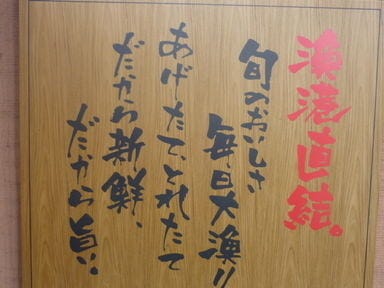 漁港直結。
旬のおいしさ
毎日大漁!!
あげたて、とれたて
だから新鮮、
だから旨い。